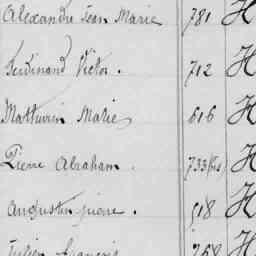 Alexandre Jean Marie 781 H
Ferdinand Victor. 712 H
Mathurin Marie 616 H
Pierre Abraham. 733 (bis) H
Augustin pierre. 518 H
Julien François 758 H